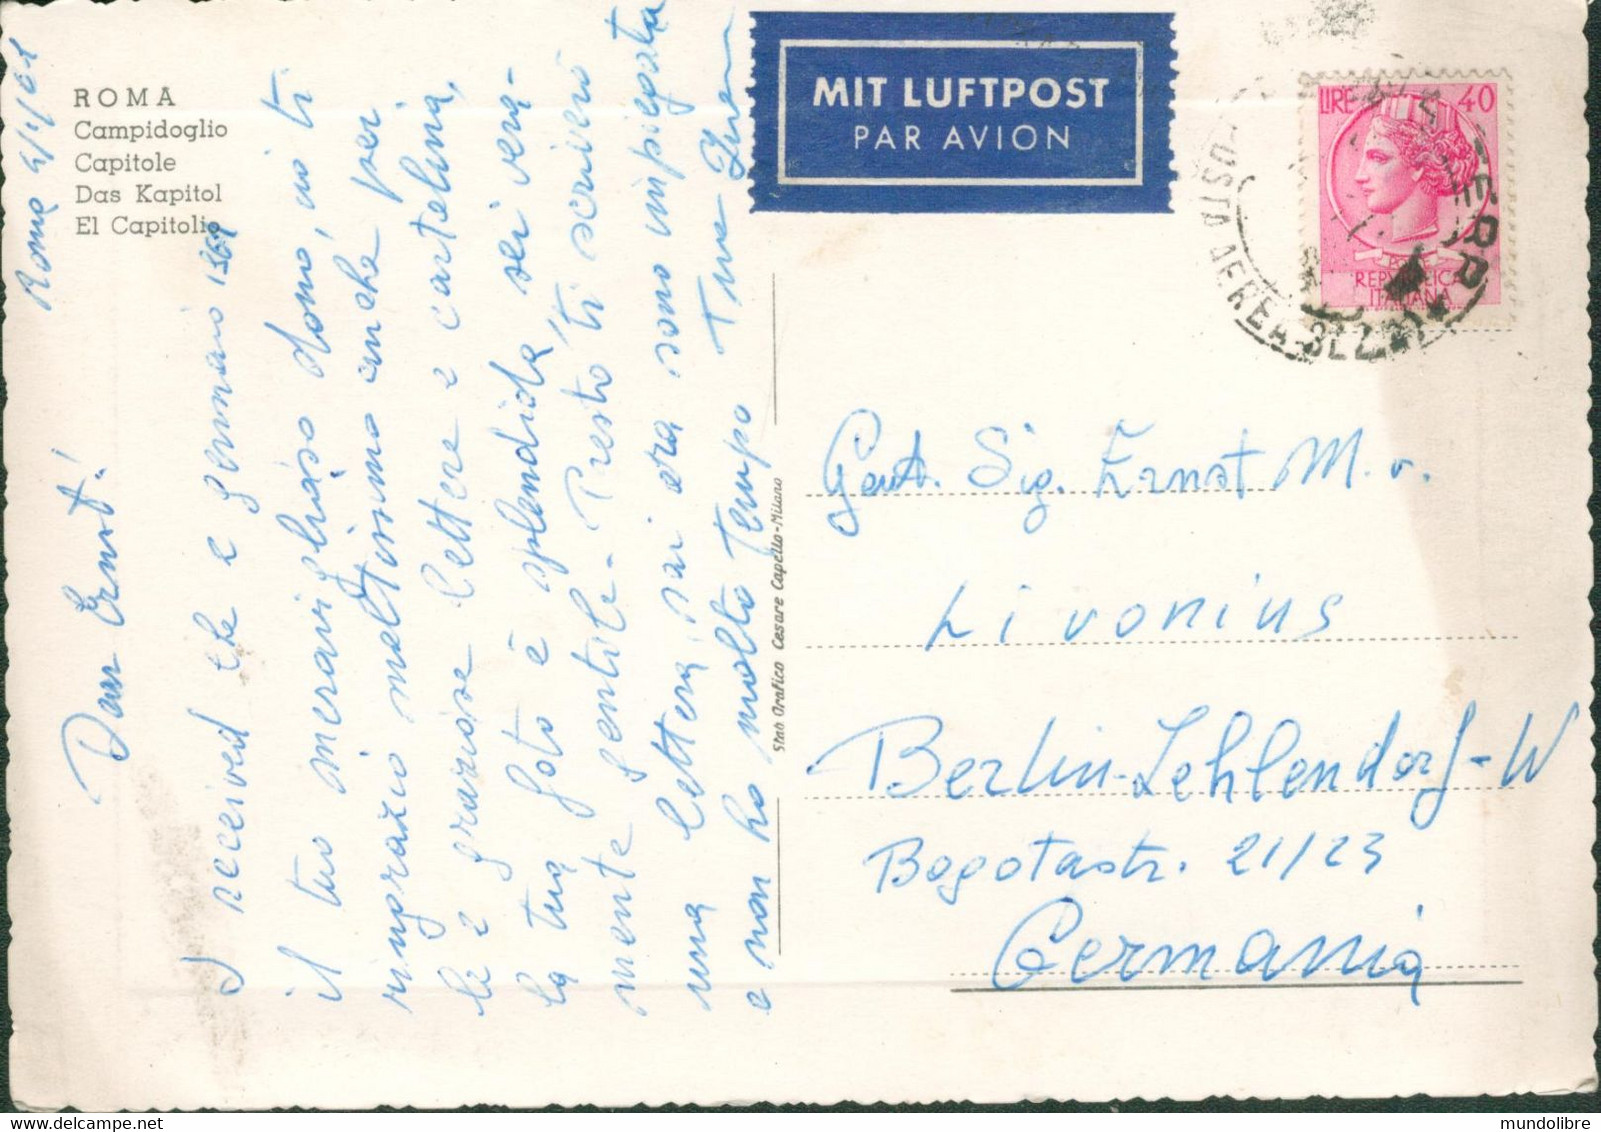 ROMA
Campidoglio
Capitole
Das Kapitol
El Capitolio
Roma 4/1/61
Dear Ernst!
I received the 2 gennaio 1961
il tuo meraviglioso dono, io ti
ringrazio moltissimo anche per
le 2 graziose lettere e cartolina,
la tua foto è splendida, sei vera-
mente gentile. Presto ti scriverò
una lettera, sai ora sono impiegata
e non ho molto tempo Tua
Stab Grafico Cesare Capello-Milano
MIT LUFTPOST
PAR AVION
LIRE 40
POSTE
REPVBBLICA
ITALIANA
POSTA AEREA
Gent. Sig. Ernst M. v.
Livonius
Berlin-Zehlendorf-W
Bogotastr. 21/23
Germania
mundolibre